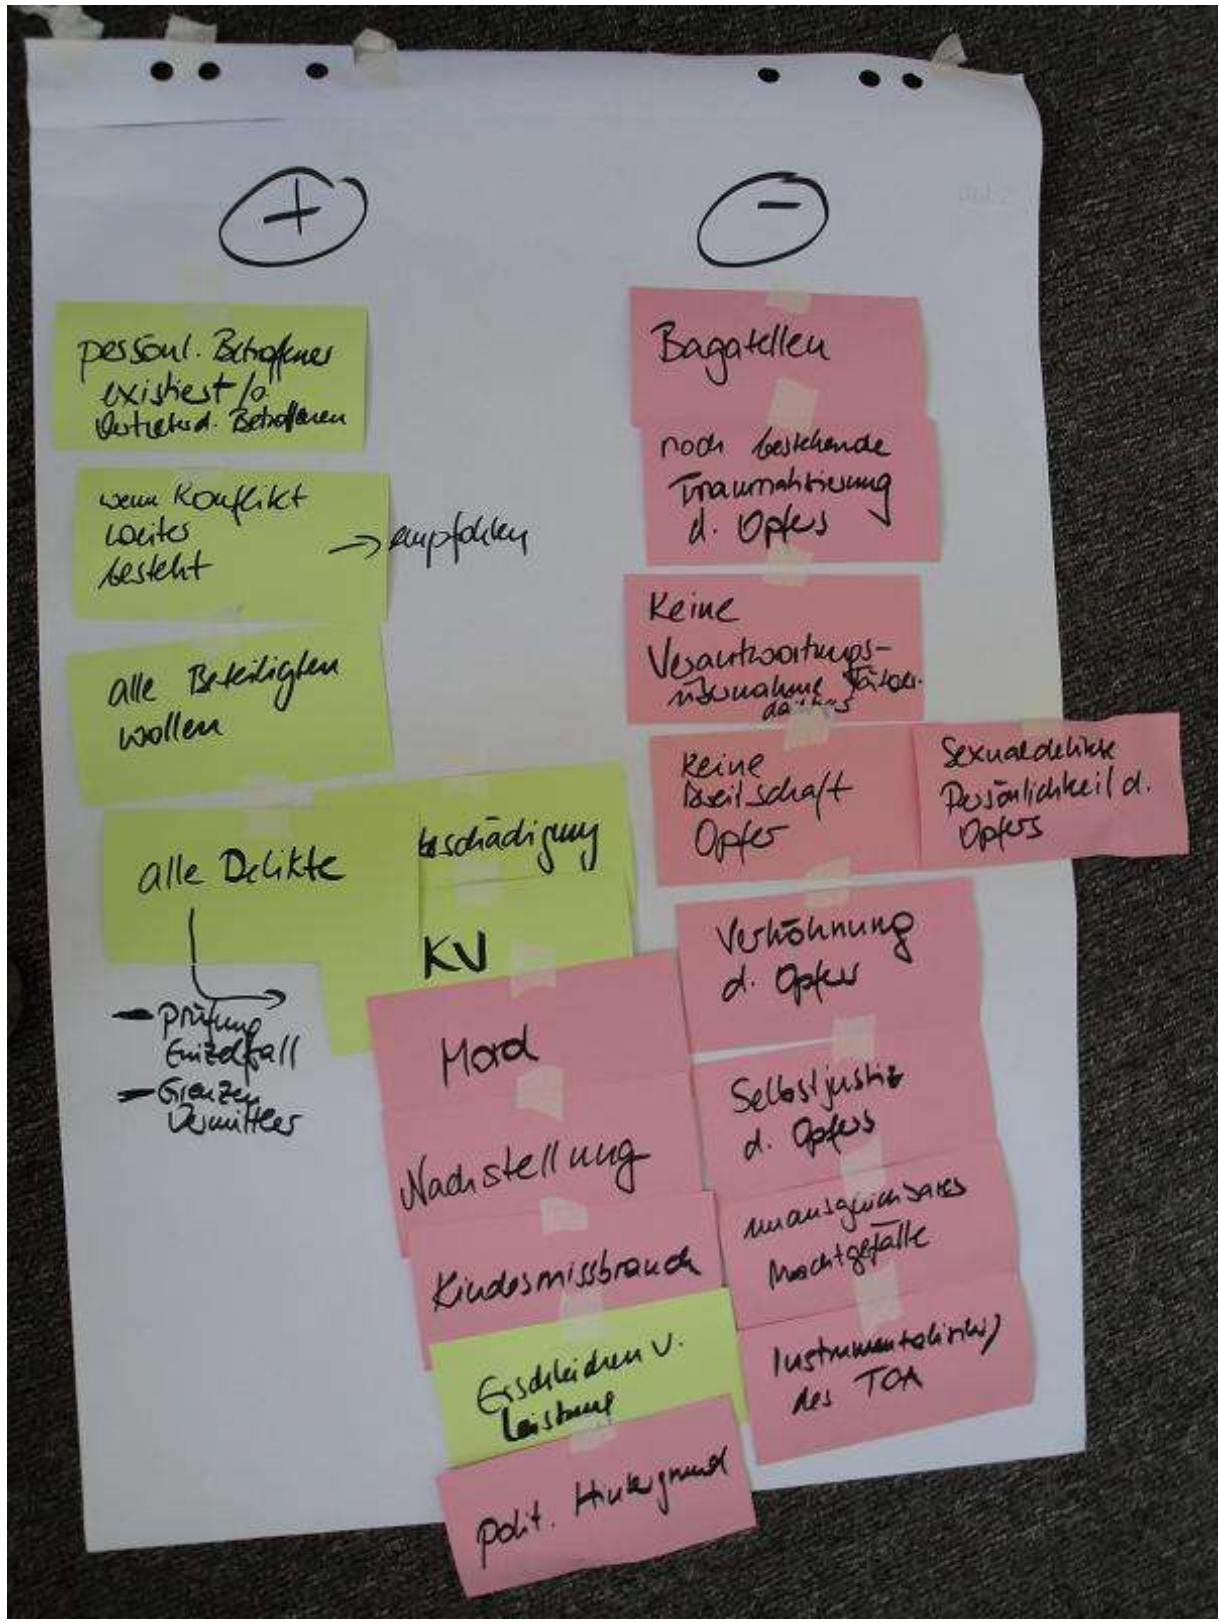 +
persönl. Betroffener
existiert /o
Vertreter d. Betroffenen
wenn Konflikt
weiter
besteht
→ empfohlen
alle Beteiligten
wollen
alle Delikte
beschädigung
KV
- Prüfung
Einzelfall
- Grenzen
Vermittler
Mord
Nachstellung
Kindesmissbrauch
Erschleichen v.
Leistung
polit. Hintergrund
-
Bagatellen
noch bestehende
Traumatisierung
d. Opfers
Keine
Verantwortungs-
übernahme
Keine
Bereitschaft
Opfer
Sexualdelikte
Persönlichkeit d.
Opfers
Verhöhnung
d. Opfers
Selbstjustiz
d. Opfers
unausgleichbares
Machtgefälle
Instrumentalisierung
des TOA